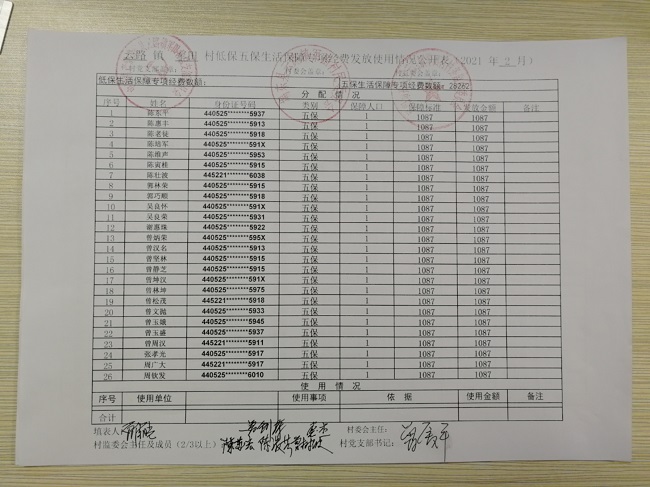 云路 镇 田 村低保五保生活保障专项经费发放使用情况公开表（2021 年 2 月）
村党支部盖章： 村委会盖章： 村监委会盖章：
低保生活保障专项经费数额： 五保生活保障专项经费数额：28262
分 配 情 况
序号 姓名 身份证号码 类别 保障人口 保障标准 发放金额 备注
1 陈东平 440525********5937 五保 1 1087 1087
2 陈惠丰 440525********5913 五保 1 1087 1087
3 陈老徒 440525********5918 五保 1 1087 1087
4 陈培军 440525********591X 五保 1 1087 1087
5 陈维声 440525********5953 五保 1 1087 1087
6 陈寅桂 440525********5915 五保 1 1087 1087
7 陈壮波 445221********6038 五保 1 1087 1087
8 郭林荣 440525********5915 五保 1 1087 1087
9 郭巧顺 440525********5918 五保 1 1087 1087
10 吴良怀 440525********591X 五保 1 1087 1087
11 吴良荣 440525********5931 五保 1 1087 1087
12 谢惠珠 440525********5922 五保 1 1087 1087
13 曾炳荣 440525********595X 五保 1 1087 1087
14 曾汉名 440525********5913 五保 1 1087 1087
15 曾坚林 440525********5915 五保 1 1087 1087
16 曾静芝 440525********5915 五保 1 1087 1087
17 曾坤汉 440525********591X 五保 1 1087 1087
18 曾林坤 440525********5975 五保 1 1087 1087
19 曾松茂 445221********5918 五保 1 1087 1087
20 曾文抛 440525********5933 五保 1 1087 1087
21 曾玉娥 440525********5945 五保 1 1087 1087
22 曾玉盛 440525********5937 五保 1 1087 1087
23 曾周汉 445221********5911 五保 1 1087 1087
24 张孝光 440525********5917 五保 1 1087 1087
25 周广大 445221********5917 五保 1 1087 1087
26 周钦发 440525********6010 五保 1 1087 1087
使 用 情 况
序号 使用单位 使用事项 依 据 使用金额 备注
合计
填表人： 村委会主任：
村监委会主任及成员（2/3以上） 村党支部书记：